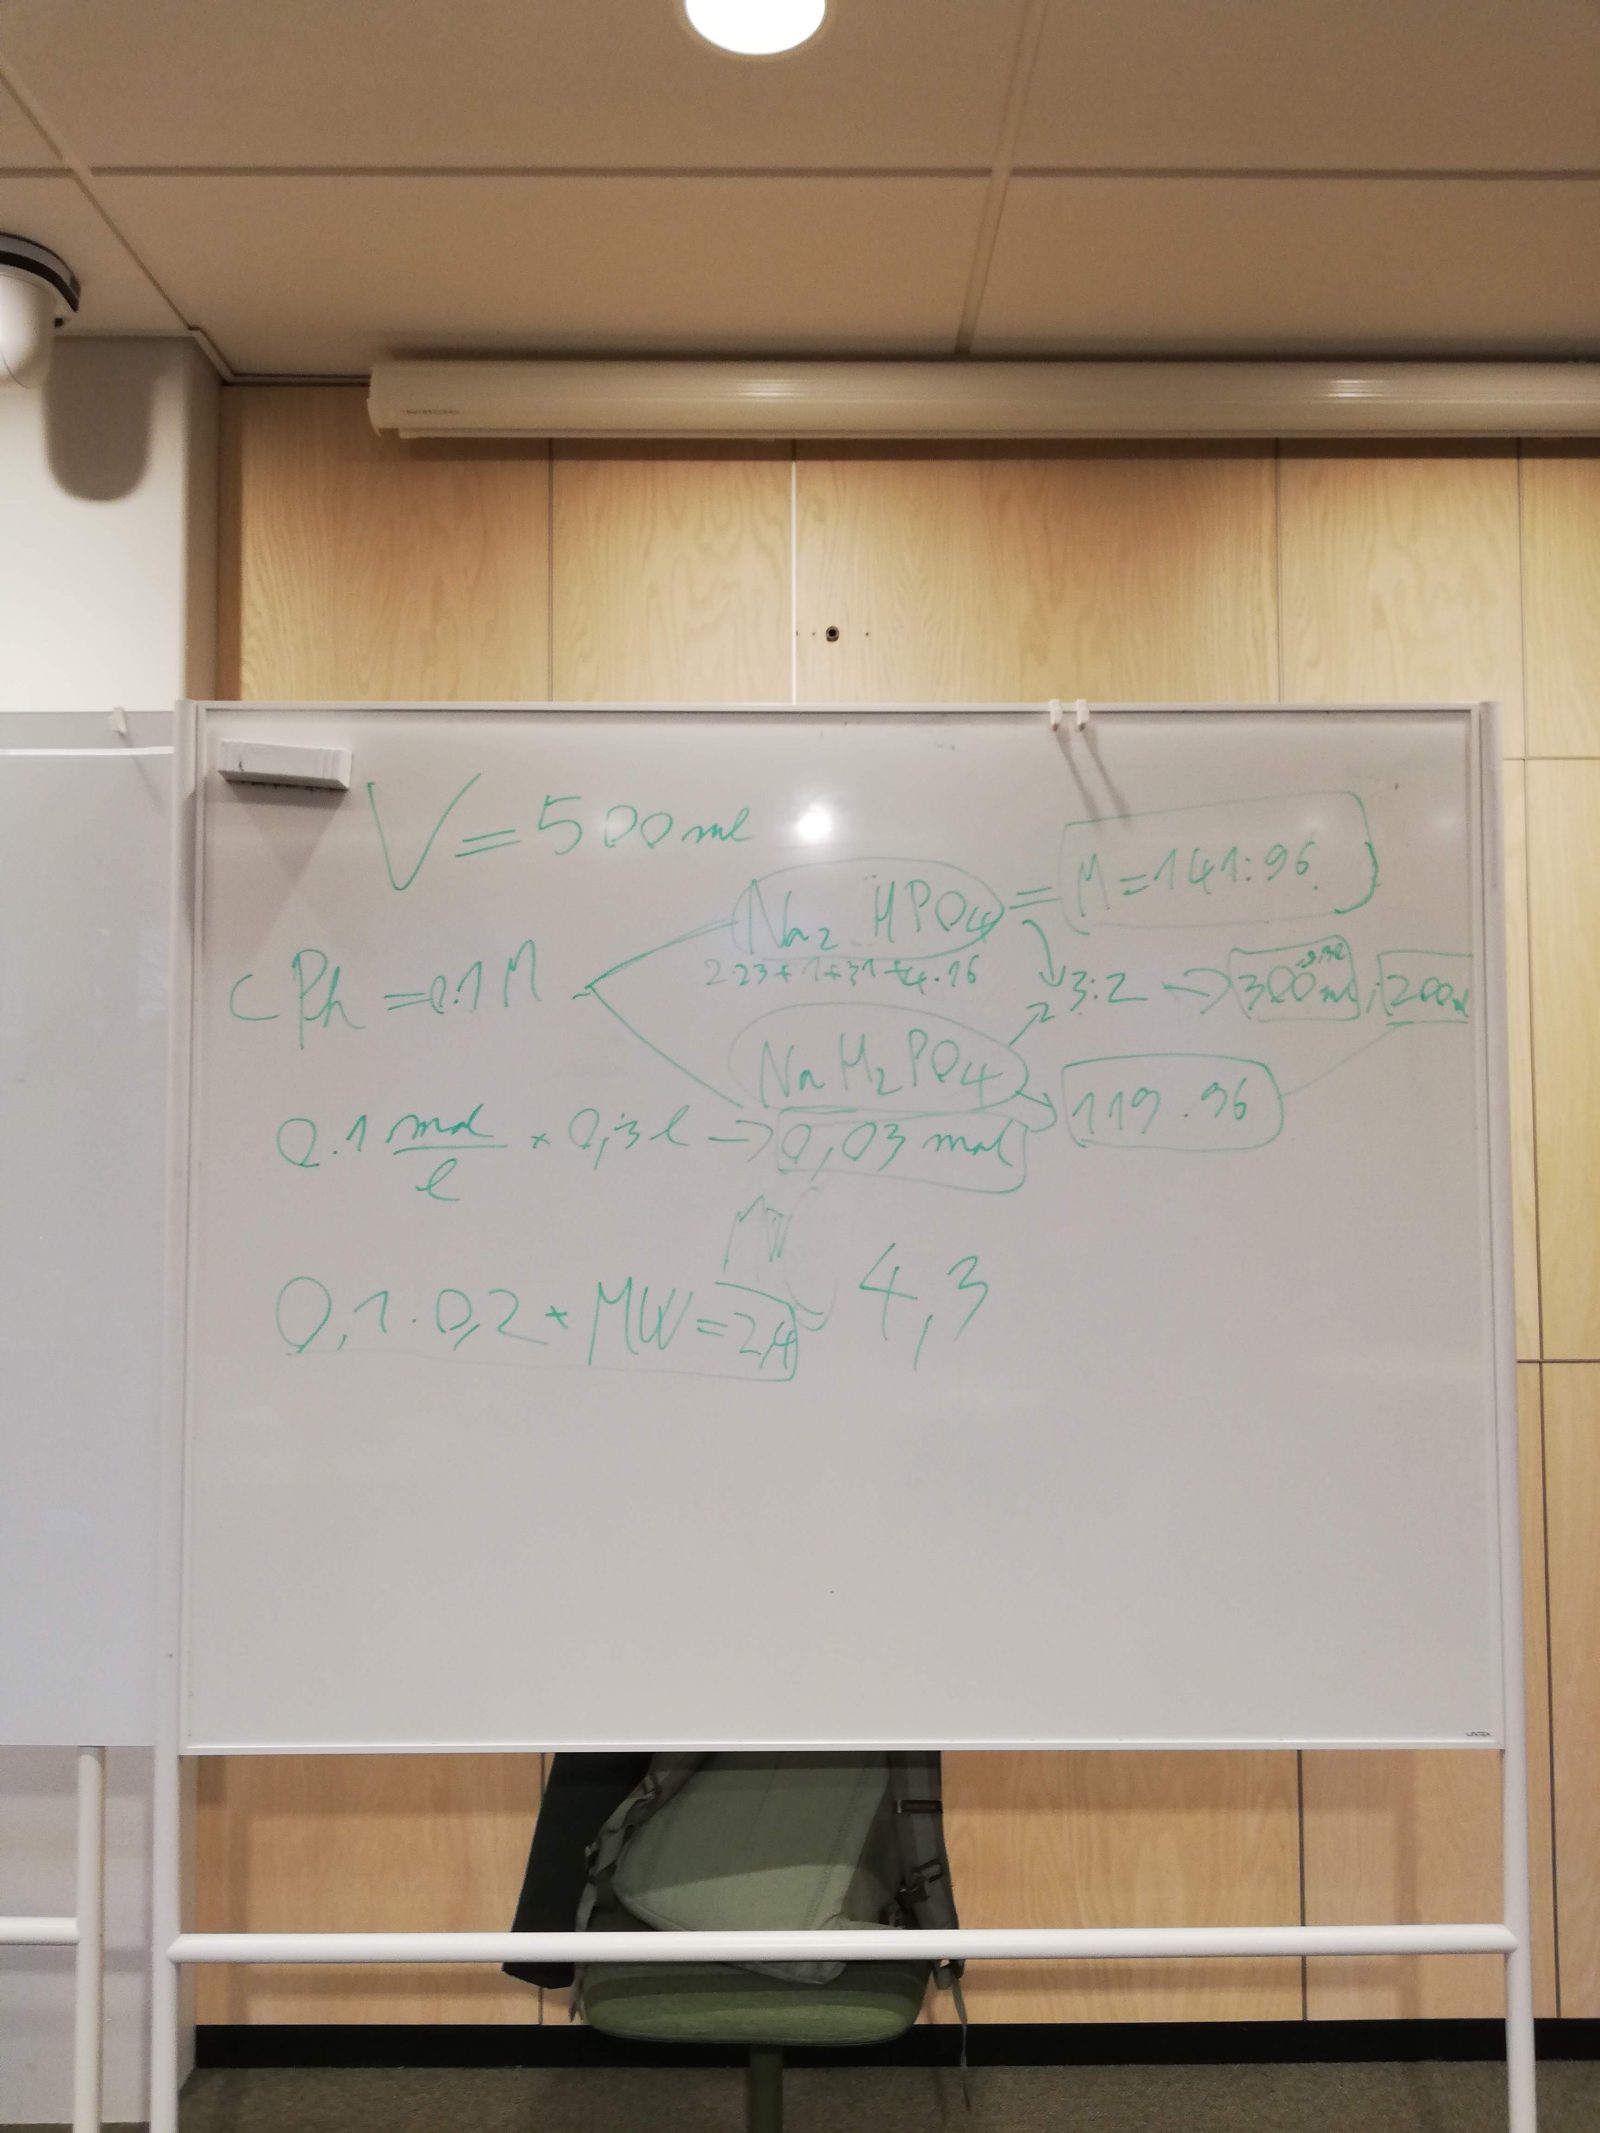 V = 500 ml
Na₂HPO₄ = M = 141.96
2·23 + 1 + 31 + 4·16
CPh = 0.1 M
3:2 → 300 ml ; 200
NaH₂PO₄
119.96
0.1 mol/l × 0,3 l → 0,03 mol
MW
0,1 · 0,2 * MW = 2,4 ~ 4,3